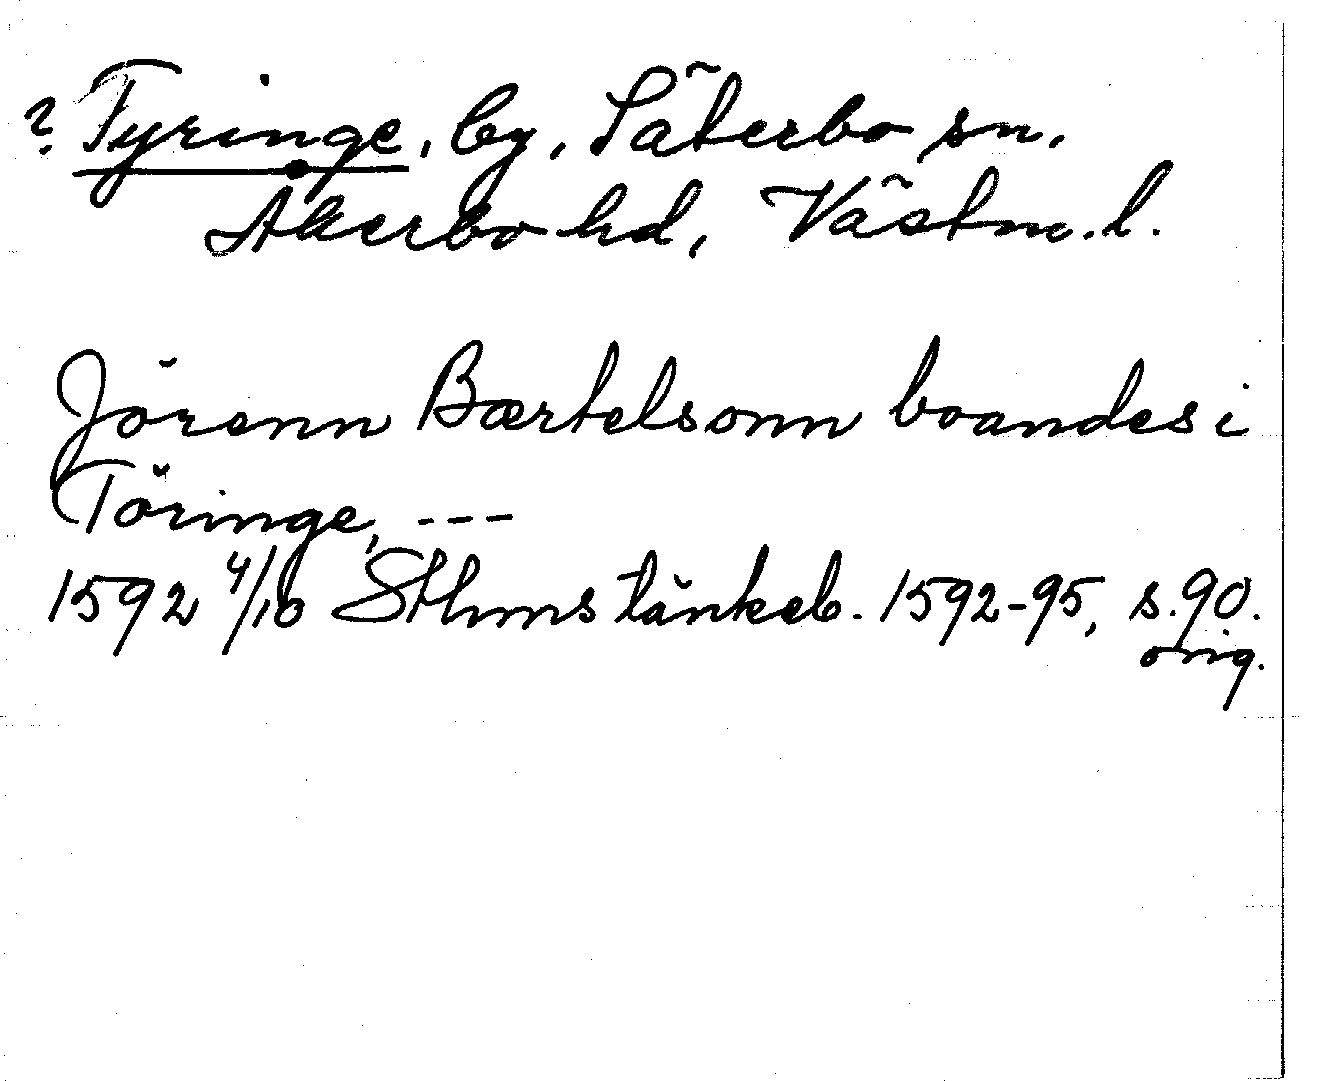 ? Tyringe, by, Säterbo sn.
Åkerbo hd, Västm. l.
Jörenn Bærtelsonn boandes i
Töringe, ---
1592 4/10 Sthms tänkeb. 1592-95, s. 90.
orig.